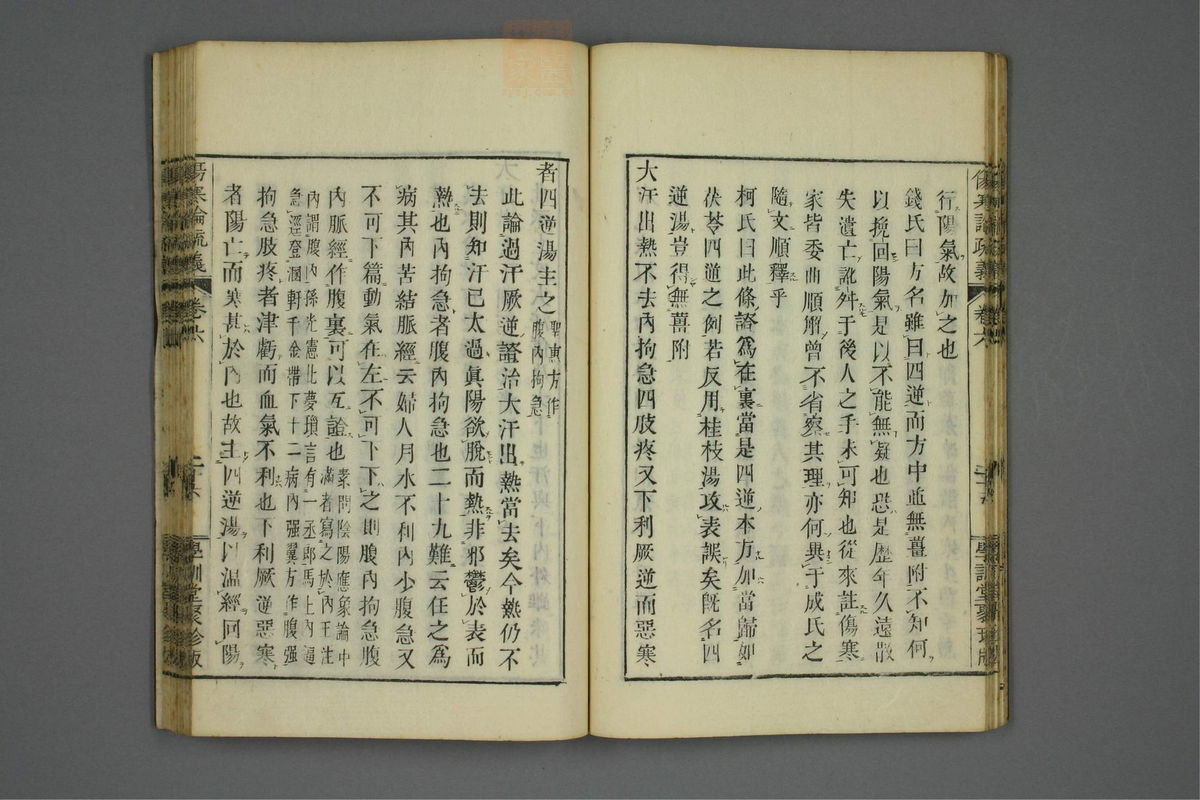 行陽氣故加之也
錢氏曰方名雖曰四逆而方中並無薑附不知何
以挽回陽氣是以不能無疑也恐是歷年久遠散
失遺亡訛舛于後人之手未可知也從來註傷寒
家皆委曲順解曾不省察其理亦何異于成氏之
隨文順釋乎
柯氏曰此條證爲在裏當是四逆本方加當歸如
茯苓四逆之例若反用桂枝湯攻表誤矣旣名四
逆湯豈得無薑附
大汗出熱不去內拘急四肢疼又下利厥逆而惡寒
者四逆湯主之聖惠方作腹內拘急
此論過汗厥逆證治大汗出熱當去矣今熱仍不
去則知汗已太過眞陽欲脫而熱非邪鬱於表而
熱也內拘急者腹內拘急也二十九難云任之爲
病其內苦結脈經云婦人月水不利內少腹急又
不可下篇動氣在左不可下下之則腹內拘急腹
內脈經作腹裏可以互證也素問陰陽應象論中滿者寫之於內王注
內謂腹內孫光憲北夢瑣言有一丞郎馬上內逼
急遽登溷軒千金帶下十二病內强翼方作腹强
拘急肢疼者津虧而血氣不利也下利厥逆惡寒
者陽亡而寒甚於內也故主四逆湯以溫經回陽
傷寒論疏義
卷六
學訓堂聚珍版